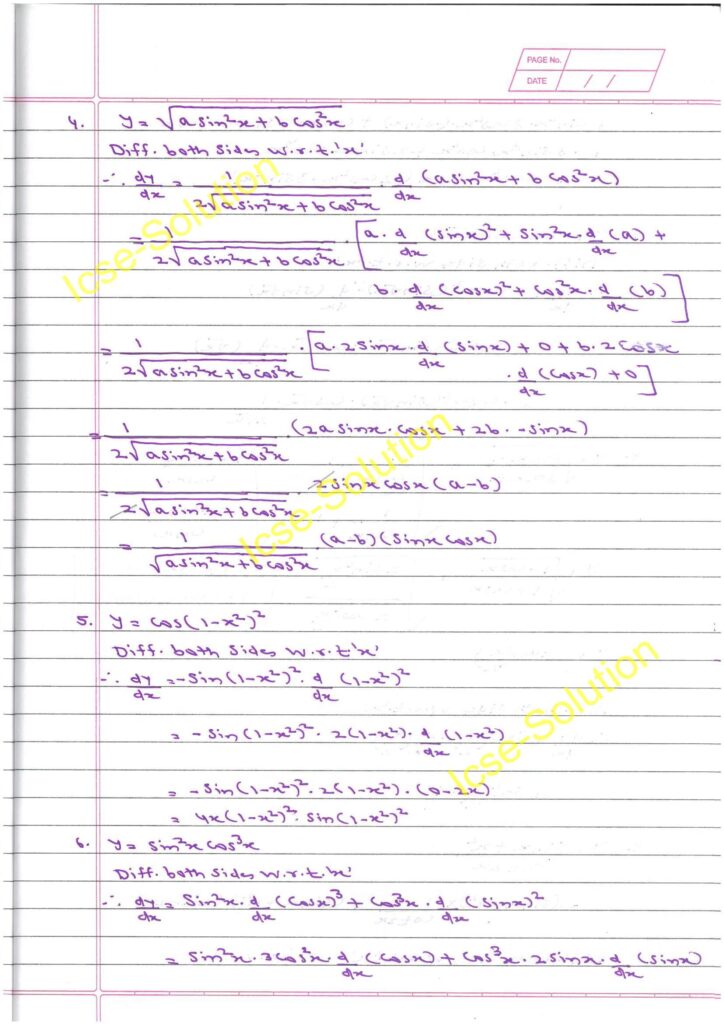 PAGE No.
DATE / /
4. y = √(a sin²x + b cos²x)
Diff. both sides w.r.t. 'x'
∴ dy/dx = 1/(2√(a sin²x + b cos²x)) · d/dx (a sin²x + b cos²x)
= 1/(2√(a sin²x + b cos²x)) · [a · d/dx (sinx)² + sin²x · d/dx (a) +
b · d/dx (cosx)² + cos²x · d/dx (b)]
= 1/(2√(a sin²x + b cos²x)) · [a · 2 sinx · d/dx (sinx) + 0 + b · 2 cosx
· d/dx (cosx) + 0]
= 1/(2√(a sin²x + b cos²x)) · (2a sinx · cosx + 2b · -sinx)
= 1/(2√(a sin²x + b cos²x)) · 2 sinx cosx (a-b)
= 1/√(a sin²x + b cos²x) · (a-b)(sinx cosx)
5. y = cos(1-x²)²
Diff. both sides w.r.t 'x'
∴ dy/dx = -sin(1-x²)² · d/dx (1-x²)²
= -sin(1-x²)² · 2(1-x²) · d/dx (1-x²)
= -sin(1-x²)² · 2(1-x²) · (0-2x)
= 4x(1-x²)² · sin(1-x²)²
6. y = sin²x cos³x
Diff. both sides w.r.t. 'x'
∴ dy/dx = sin²x · d/dx (cosx)³ + cos³x · d/dx (sinx)²
= sin²x · 3cos²x · d/dx (cosx) + cos³x · 2 sinx · d/dx (sinx)
Icse-Solution
Icse-Solution
Icse-Solution